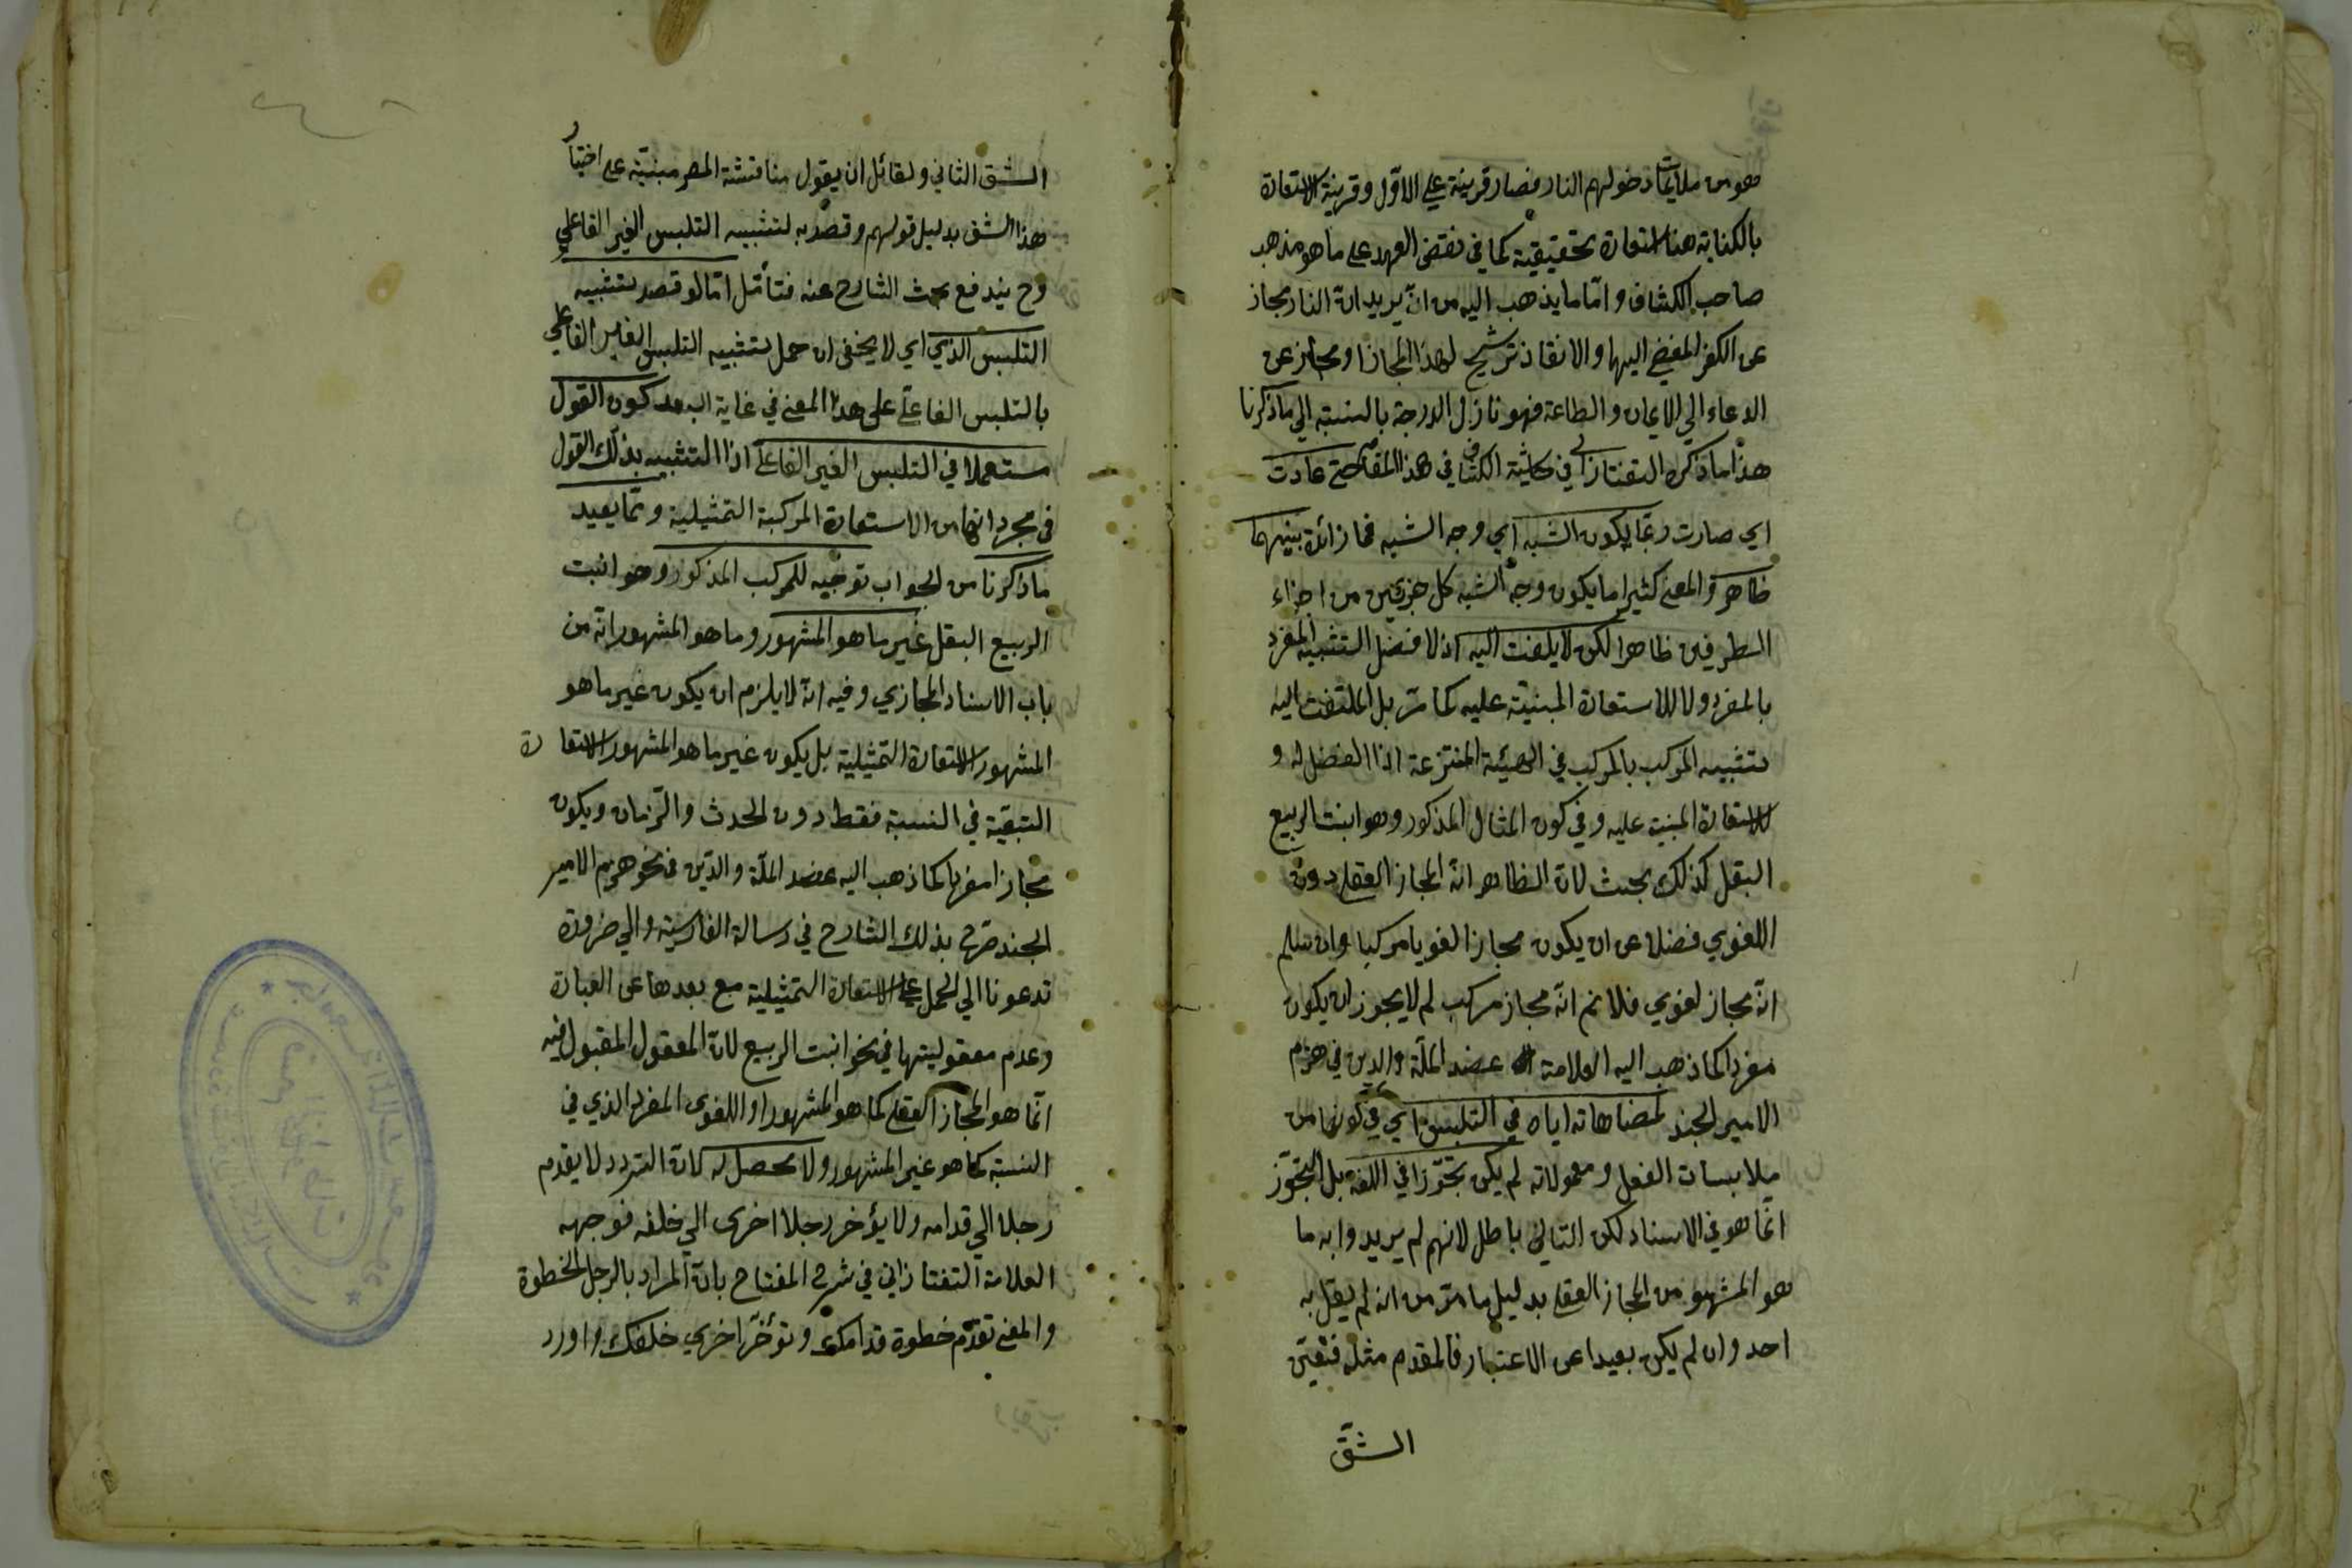 هو من ملايمات دخولهم النار فصار قرينة على الاوّل وقرينة الاستعارة
بالكناية هنا استعارة تحقيقية كما في نقض العهد على ما هو مذهب
صاحب الكشاف وامّا ما يذهب اليه من انّ يريد انّ النار مجاز
عن الكفر المفضي اليها والانقاذ ترشيح لهذا المجاز او مجاز عن
الدعاء الي الايمان والطاعة فهو نازل الدرجة بالنسبة الي ما ذكرنا
هذا ما ذكره التفتازاني في حاشية الكشاف في هذا المقام حتى عادت
اي صارت ربما يكون الشبه اي وجه الشبه فيما زائدة بينهما
ظاهر والمعنى كثيرا ما يكون وجه الشبه كل جزئين من اجزاء
الطرفين ظاهرا لكن لا يلتفت اليه اذ لا فضل لتشبيه المفرد
بالمفرد ولا للاستعارة المبنيّة عليه كما مرّ بل الملتفت اليه
تشبيه المركب بالمركب في الهيئة المنتزعة اذ الفضل له و
للاستعارة المبنية عليه وفي كون المثال المذكور وهو انبت الربيع
البقل كذلك بحث لانّ الظاهر انّه المجاز العقلي دون
اللغوي فضلا عن ان يكون مجازا لغويا مركبا وان سلم
انّه مجاز لغوي فلا نم انّه مجاز مركب لم لا يجوز ان يكون
مفردا كما ذهب اليه العلامة عضد الملّة والدين في هزم
الامير الجند لمضاهاته اياه في التلبس اي في كونهما من
ملابسات الفعل ومعمولاته لم يكن تجوّزا في اللغة بل التجوّز
انّما هو في الاسناد لكن التالي باطل لانهم لم يريدوا به ما
هو المشهور من المجاز العقلي بدليل ما مرّ من انه لم يقل به
احد وان لم يكن بعيدا عن الاعتبار فالمقدم مثله فتعيّن
الشقّ
الشق الثاني ولقائل ان يقول مناقشة المص مبنيّة على اختيار
هذا الشق بدليل قولهم وقصد به لتشبيه التلبس الغير الفاعلي
وح يندفع بحث الشارح عنه فتأمّل امّا لو قصد بتشبيه
التلبس الذي اي لا يخفى ان حمل تشبيه التلبس الغير الفاعلي
بالتلبس الفاعلي على هذا المعنى في غاية البعد كون القول
مستعملا في التلبس الغير الفاعلي اذا التشبيه بذلك القول
في مجرد انها من الاستعارة المركبة التمثيلية وممّا يفيد
ما ذكرنا من الجواب توجيه للمركب المذكور وهو انبت
الربيع البقل غير ما هو المشهور وما هو المشهور انّه من
باب الاسناد المجازي وفيه انّه لا يلزم ان يكون غير ما هو
المشهور الاستعارة التمثيلية بل يكون غير ما هو المشهور الاستعارة
التبعيّة في النسبة فقط دون الحدث والزمان ويكون
مجازا مفردا كما ذهب اليه عضد الملّة والدّين في نحو هزم الامير
الجند صرّح بذلك الشارح في رسالة الفارسية والي ضرورة
تدعونا الي الحمل على الاستعارة التمثيلية مع بعدها عن العبارة
وعدم معقوليتها في نحو انبت الربيع لانّ المعقول المقبول فيه
انّما هو المجاز العقلي كما هو المشهور او اللغوى المفرد الذي في
النسبة كما هو غير المشهور ولا محصل له لانّ التردد لا يقدم
رجلا الي قدامه ولا يؤخر رجلا اخرى الي خلفه فوجهه
العلامة التفتازاني في شرح المفتاح بانّ المراد بالرجل الخطوة
والمعنى تقدّم خطوة قدامك وتؤخّر اخري خلفك واورد